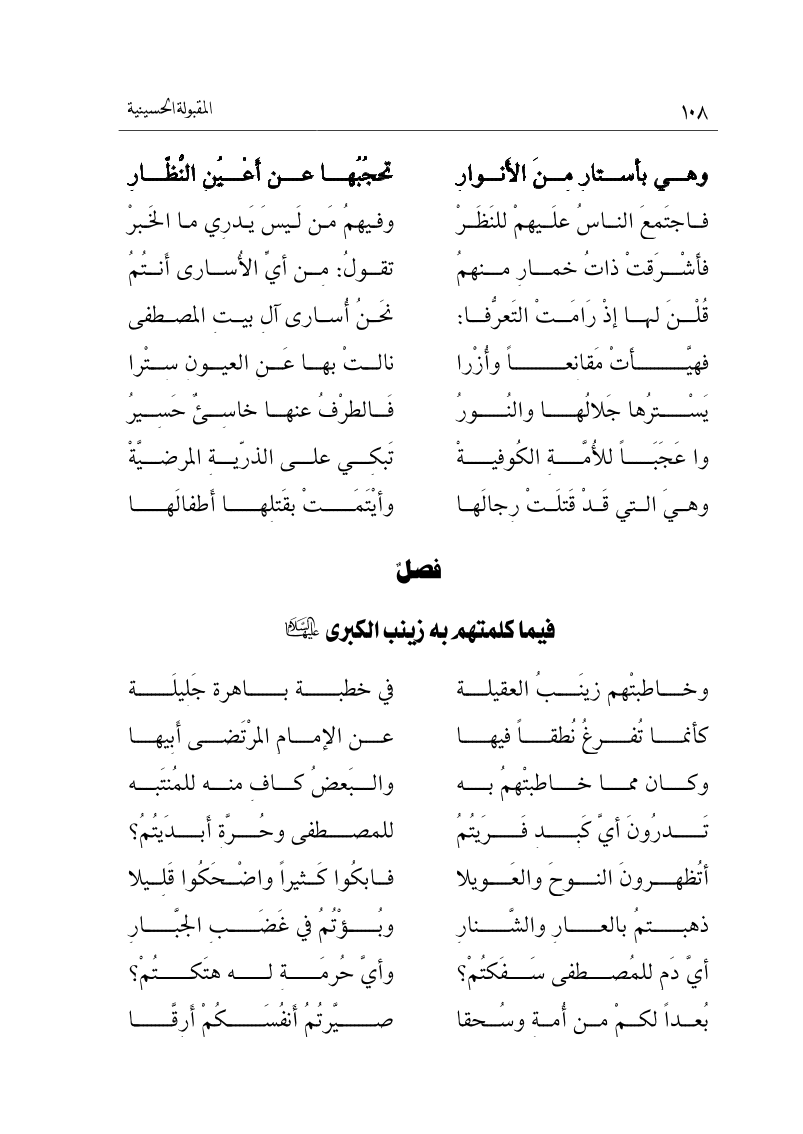 ١٠٨ المقبولة الحسينية
وهي بأستار منَ الأنوار تحجبُبُها عن أعْيُن النُّظّار
فاجتَمعَ الناسُ علَيهمْ للنَظَرْ وفيهمُ مَن لَيسَ يَدري ما الخَبرْ
فأشْرَقتْ ذاتُ خمار منهمُ تقولُ: من أيِّ الأُسارى أنتُمُ
قُلْنَ لها إذْ رَامَتْ التَعرُّفا: نحَنُ أُسارى آل بيت المصطفى
فهيَّأتْ مَقانعاً وأُزْرا نالتْ بها عَن العيون ستْرا
يَسْترُها جَلالُها والنُورُ فَالطرْفُ عنها خاسئٌ حَسيرُ
وا عَجَبَاً للأُمَّة الكُوفيةْ تَبكي على الذرّية المرضيَّةْ
وهيَ التي قَدْ قَتلَتْ رجالَها وأيْتَمَتْ بقَتلها أطفالَها
فصلٌ
فيما كلمتهم به زينب الكبرى عليها السلام
وخاطبتْهم زينَبُ العقيلة في خطبة باهرة جَليلَة
كأنما تُفرغُ نُطقاً فيها عن الإمام المرْتَضى أبيها
وكان مما خاطبتْهمُ به والبَعضُ كاف منه للمُنتَبه
تَدرُونَ أيَّ كَبد فَريَتُمُ للمصطفى وحُرَّة أبدَيتُمُ؟
أتُظهرونَ النوحَ والعَويلا فابكُوا كَثيراً واضْحَكُوا قَليلا
ذهبتمُ بالعار والشَّنار وبُؤْتُمُ في غَضَب الجبَّار
أيَّ دَم للمُصطفى سَفَكتُمْ؟ وأيَّ حُرمَة له هتَكتُمْ؟
بُعداً لكمْ من أُمة وسُحقا صيَّرتُمُ أنفُسَكُمْ أرِقَّا